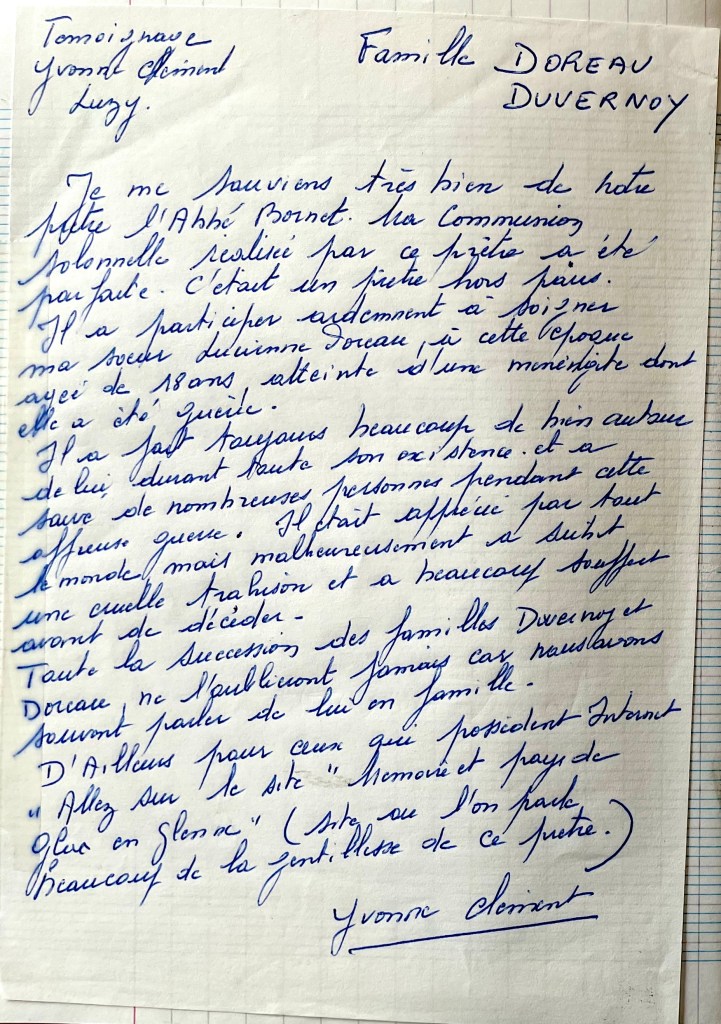 Temoignage
Yvonne Clément
Luzy.
Famille DOREAU
DUVERNOY
Je me souviens très bien de notre
prêtre l'Abbé Bornet. Ma Communion
solonnelle realisée par ce prêtre a été
parfaite. C'était un prêtre hors pairs.
Il a participer ardemment à soigner
ma soeur Lucienne Doreau, à cette époque
agée de 18 ans, atteinte d'une menengite dont
elle a été guérie.
Il a fait toujours beaucoup de bien autour
de lui, durant toute son existence et a
sauvé de nombreuses personnes pendant cette
affreuse guerre. Il était apprécié par tout
le monde, mais malheureusement a subit
une cruelle trahison et a beaucoup souffert
avant de décéder.
Toute la succession des familles Duvernoy et
Doreau, ne l'oublieront jamais car nous avons
souvent parler de lui en famille.
D'Ailleurs pour ceux qui possèdent Internet
" Allez sur le site " Memoire et pays de
Glux en Glenne" (site ou l'on parle
beaucoup de la gentillesse de ce prêtre.)
Yvonne Clément